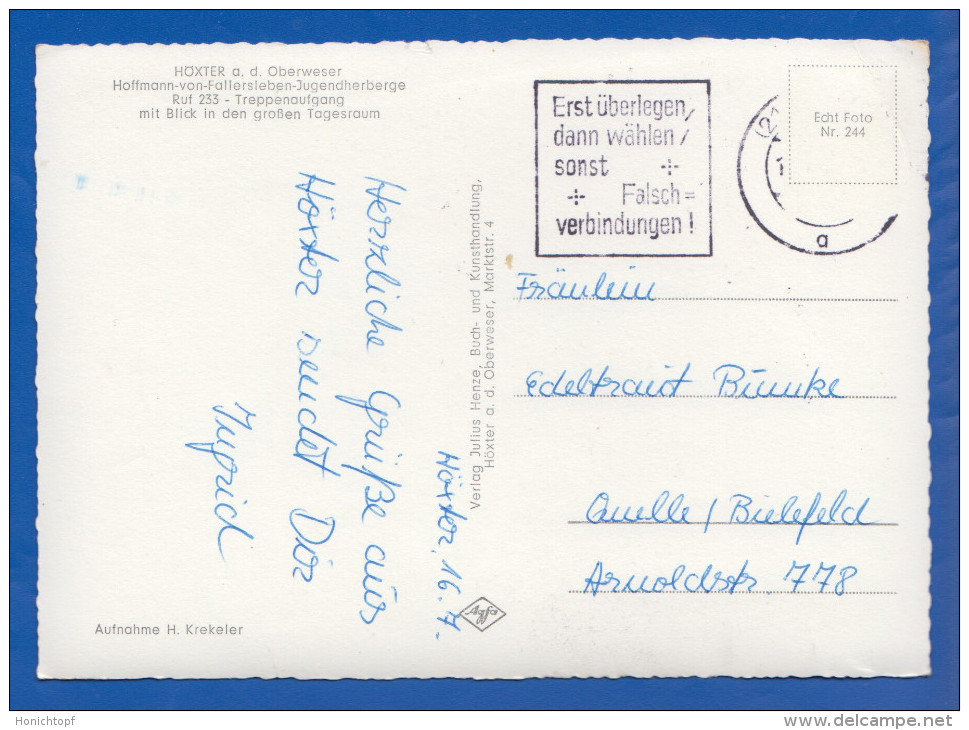 HÖXTER a. d. Oberweser
Hoffmann-von-Fallersleben-Jugendherberge
Ruf 233 - Treppenaufgang
mit Blick in den großen Tagesraum
Erst überlegen,
dann wählen,
sonst
Falsch=
verbindungen!
a
Echt Foto
Nr. 244
Höxter, 16. 7.
Herzliche Grüße aus
Höxter sendet Dir
Ingrid
Verlag Julius Henze, Buch- und Kunsthandlung,
Höxter a. d. Oberweser, Marktstr. 4
Agfa
Fräulein
Edeltraut Bumke
Quelle / Bielefeld
Arnoldstr. 778
Aufnahme H. Krekeler
Honichtopf
delcampe.net